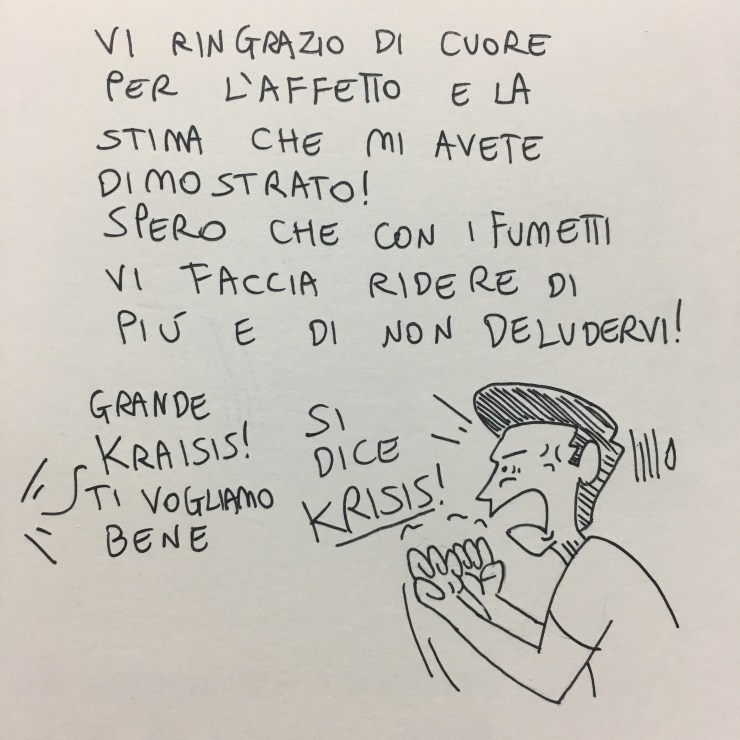 VI RINGRAZIO DI CUORE
PER L'AFFETTO E LA
STIMA CHE MI AVETE
DIMOSTRATO!
SPERO CHE CON I FUMETTI
VI FACCIA RIDERE DI
PIÚ E DI NON DELUDERVI!
GRANDE
KRAISIS!
TI VOGLIAMO
BENE
SI
DICE
KRISIS!